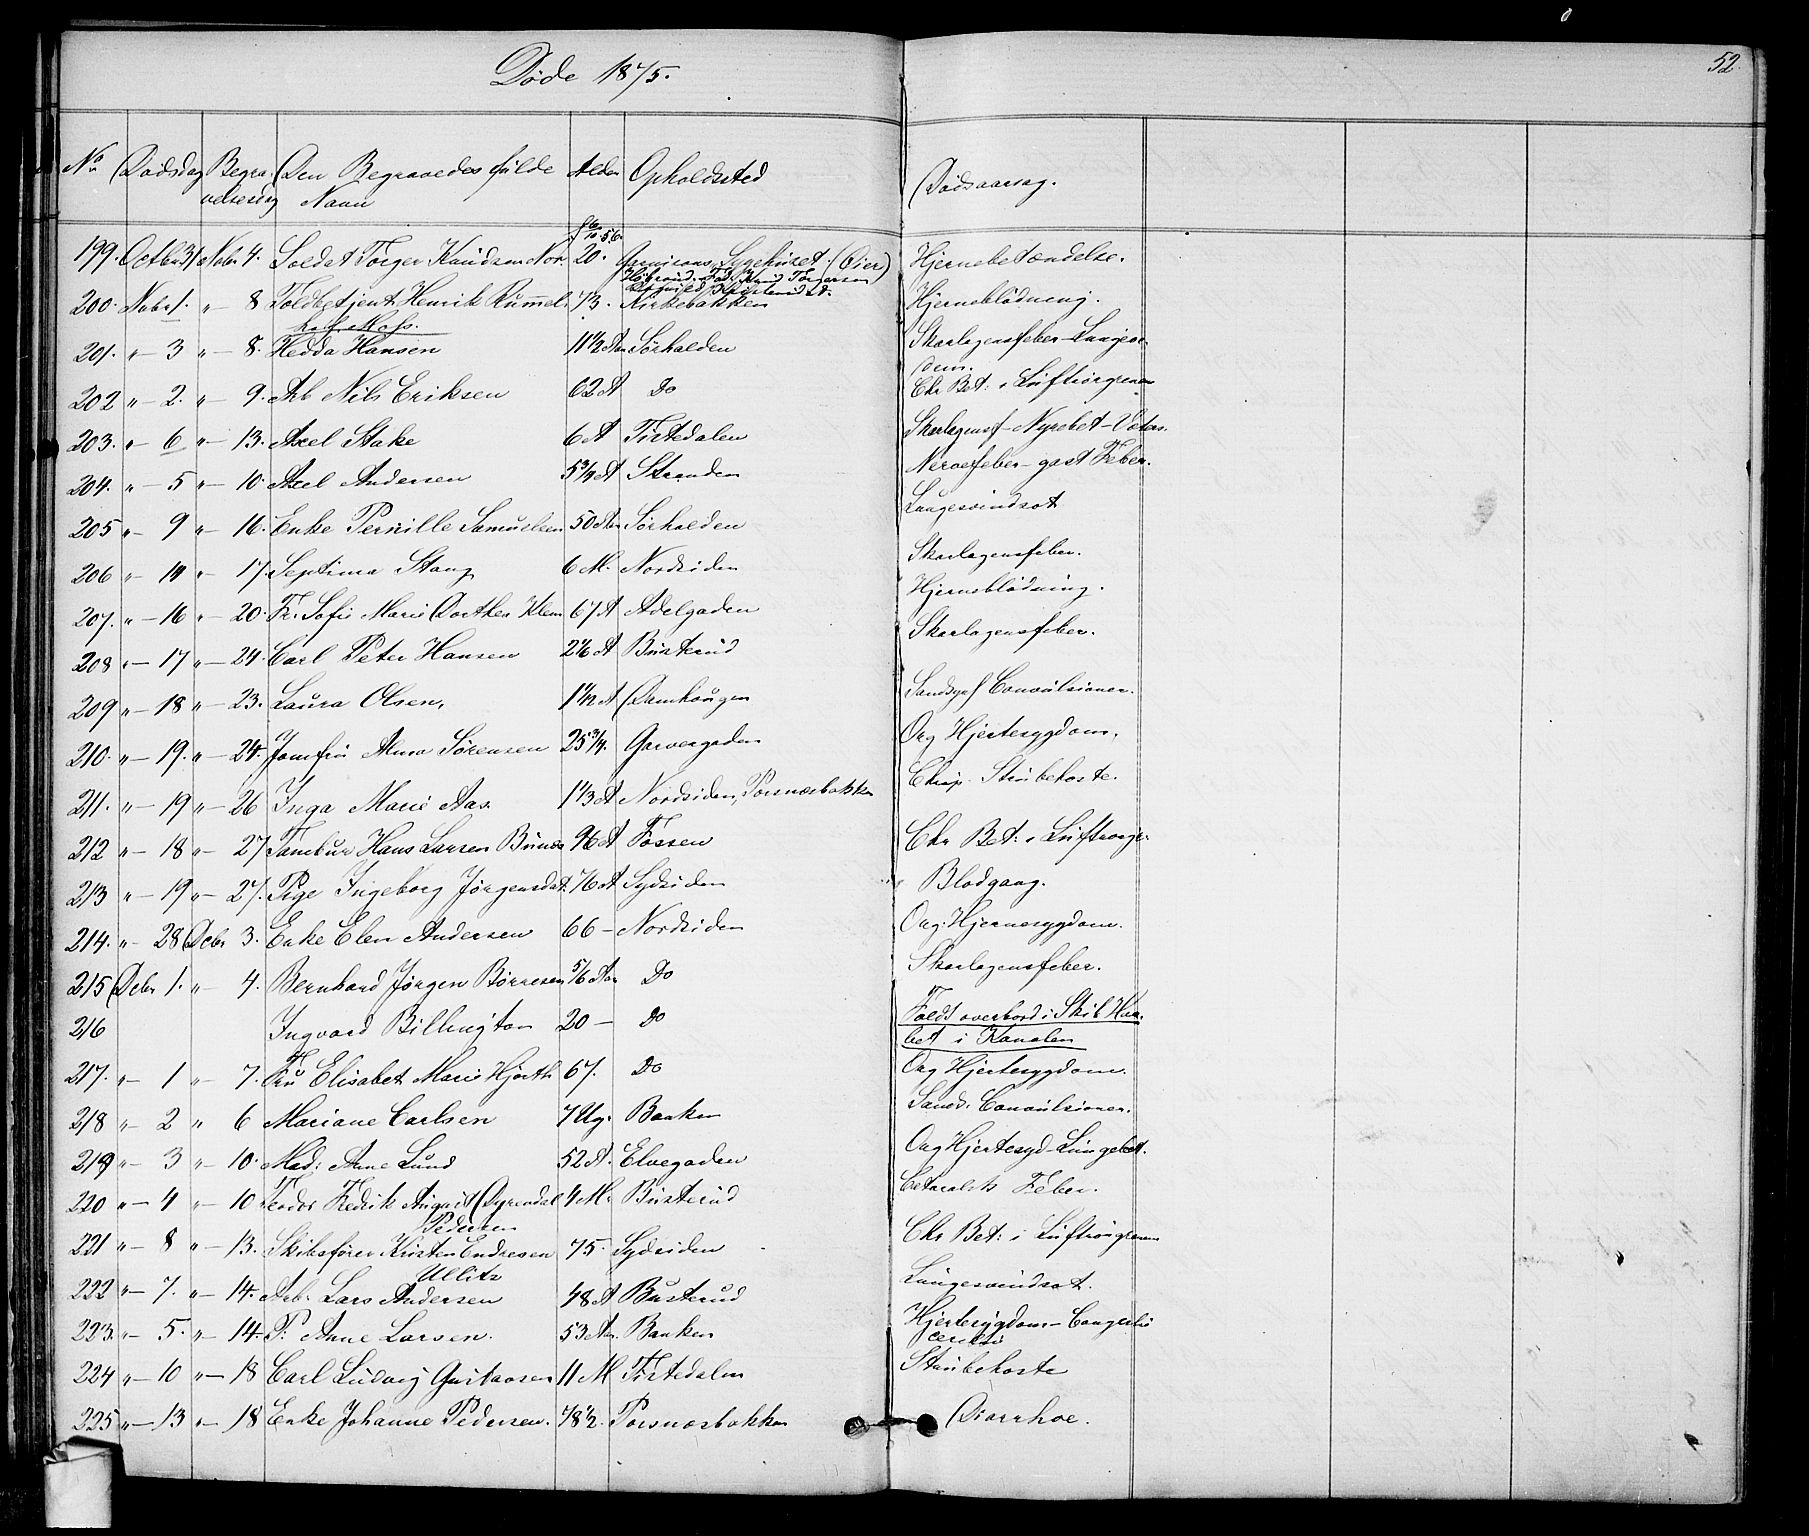 52.
Døde 1875.
No Dødsdag Begravelsesdag Den Begravedes fulde Navn Alder Opholdssted Dødsaarsag.
199. Octbr 31 Nobr 4. Soldat Torger Knudsen Nor. 20. Garnisons Sygehuset. (Eier) Hjernebetændelse.
200. Nobr 1. " 8 Toldbetjent Henrik Rummel. 73. Kirkebakken Hjerneblödning.
201. " 3 " 8. Hedda Hansen 11 1/2 Aar Sørhalden Skarlagensfeber-Lunge
202 " 2. " 9. Arb Nils Eriksen 62 A Do Chr Bet: i Luftrörgrenene
203. " 6 " 13. Axel Stake 6 A Tistedalen Skarlagensf-Nyrebet-Vaters.
204. " 5 " 10. Axel Andersen 5 3/4 A Stranden Nervefeber-gast Feber.
205 " 9 " 16. Enke Pernille Samuelsen 50 Aar Sørhalden Lungesvindsot
206 " 14 " 17. Septima Stang 6 M. Nordsiden Skarlagensfeber.
207. " 16 " 20. Fr. Sofie Marie Dorthea Klem 67 A Adelgaden Hjerneblödning.
208 " 17 " 24. Carl Peter Hansen 2 1/6 A Busterud Skarlagensfeber.
209 " 18 " 23. Laura Olsen, 1 1/12 A Damhaugen Convulsioner.
210. " 19. " 24. Jomfru Alma Sørensen 25 3/4. Garvergaden Org Hjertesygdom.
211. " 19 " 26 Inga Marie Aas. 1 1/3 A Nordsiden, Torsnæsbakken Strubehoste.
212 " 18 " 27 Tambur Hans Larsen 96 A Fossen Chr Bet: i Luftrorgr.
213 " 19 " 27. Pige Ingeborg Jørgensdat. 76 A Sydsiden Blodgang.
214. " 28 Debr 3. Enke Elen Andersen 66 - Nordsiden Org. Hjernesygdom.
215 Debr 1. " 4. Bernhard Jørgen Börresen 5/6 Aar Do Skarlagensfeber.
216 Ingvard Billington 20 - Do Faldt overbord i Skib Haabet i Kanalen
217. " 1 " 7. Fru Elisabet Marie Hjorth 67. Do Org Hjertesygdom.
218 " 2 " 6 Mariane Carlsen 7 Ug. Banken Sands. Convulsioner.
219 " 3 " 10. Mad: Anne Lund 52 A. Elvegaden Org Hjertesyd-Lungebet.
220 " 4 " 10 Teodor Fredrik August Dyrendal Pedersen 4 M. Busterud Cataralsk Feber.
221 " 8 " 13. Skibsfører Kristen Endresen 75. Sydsiden Chr Bet: i Luftrörgrenene
Ullitz
222 " 7. " 14. Arb. Lars Andersen 48 A Busterud Lungesvindsot.
223. " 5. " 14. P. Anne Larsen. 53 Aar. Banken Hjertesygdom-
224 " 10 " 18 Carl Ludvig Gustavsen 11 M Tistedalen Strubehoste
225 " 13 " 18 Enke Johanne Pedersen. 78 1/2. Torsnæsbakken Diarrhoe.